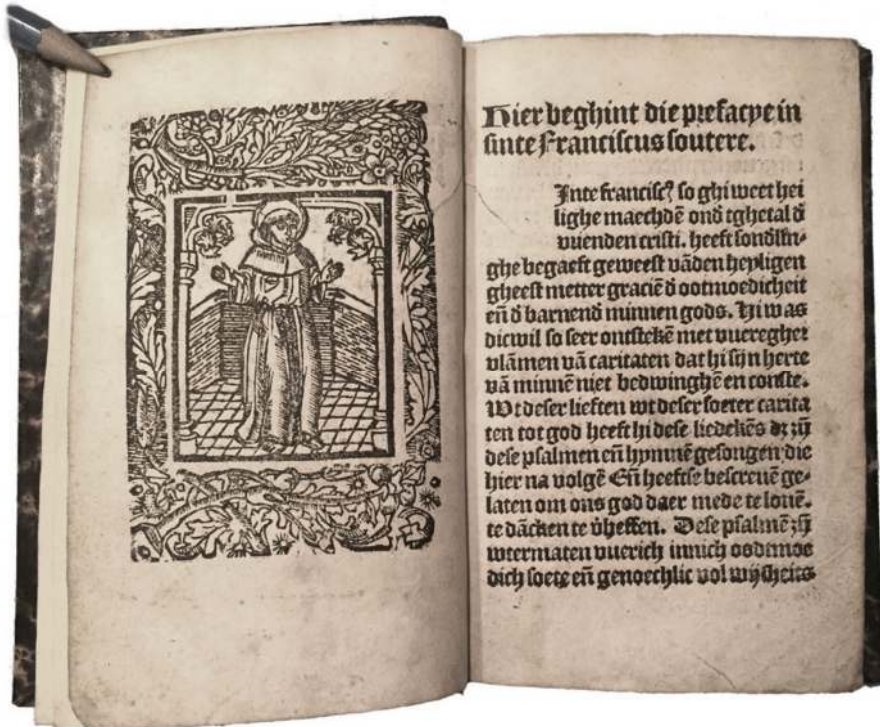 Hier beghint die prefacye in
sinte Franciscus soutere.
Inte francisc⁹ so ghi weet hei
lighe maechdē ond̄ tghetal d̄
vrienden cristi. heeft sondlin-
ghe begaeft geweest vāden heyligen
gheest metter graciē d̄ ootmoedicheit
eñ d̄ barnend̄ minnen gods. Hi was
dicwil so seer ontstekē met vuereghet
vlāmen vā caritaten dat hi sijn herte
vā minnē niet bedwinghē en conste.
Wt deser lieften wt deser soeter carita
ten tot god heeft hi dese liedekēs dz zij
dese psalmen eñ hymnē gesongen die
hier na volgē Eñ heeftse bescreuē ge-
laten om ons god daer mede te louē.
te dācken te v̄heffen. Dese psalmē zij
wtermaten vuerich innich oodtmoe
dich soete eñ genoechlic vol wijsheits